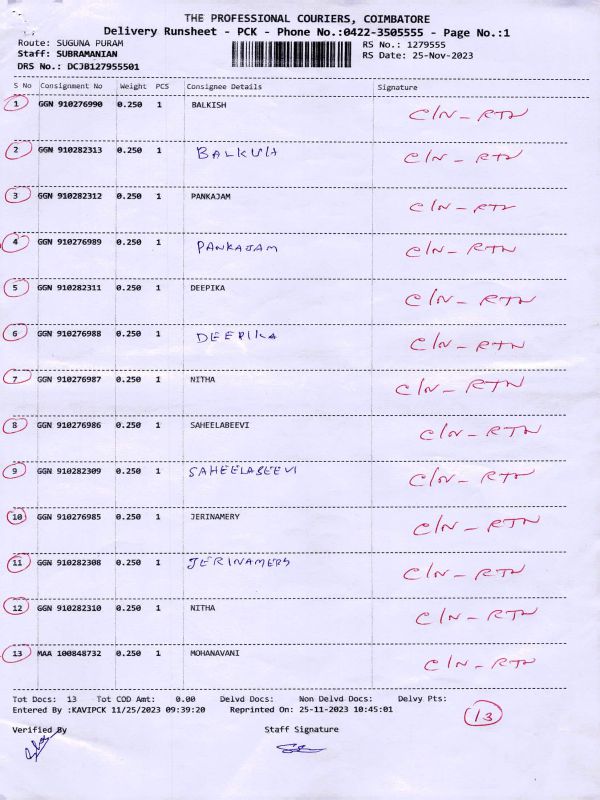 THE PROFESSIONAL COURIERS, COIMBATORE
Delivery Runsheet - PCK - Phone No.:0422-3505555 - Page No.:1
Route: SUGUNA PURAM RS No.: 1279555
Staff: SUBRAMANIAN RS Date: 25-Nov-2023
DRS No.: DCJB127955501
S No Consignment No Weight PCS Consignee Details Signature
1 GGN 910276990 0.250 1 BALKISH C/N - RTN
2 GGN 910282313 0.250 1 BALKUSH C/N - RTN
3 GGN 910282312 0.250 1 PANKAJAM C/N - RTN
4 GGN 910276989 0.250 1 PANKAJAM C/N - RTN
5 GGN 910282311 0.250 1 DEEPIKA C/N - RTN
6 GGN 910276988 0.250 1 DEEPIKA C/N - RTN
7 GGN 910276987 0.250 1 NITHA C/N - RTN
8 GGN 910276986 0.250 1 SAHEELABEEVI C/N - RTN
9 GGN 910282309 0.250 1 SAHEELABEEVI C/N - RTN
10 GGN 910276985 0.250 1 JERINAMERY C/N - RTN
11 GGN 910282308 0.250 1 JERINAMERY C/N - RTN
12 GGN 910282310 0.250 1 NITHA C/N - RTN
13 MAA 100848732 0.250 1 MOHANAVANI C/N - RTN
Tot Docs: 13 Tot COD Amt: 0.00 Delvd Docs: Non Delvd Docs: Delvy Pts:
Entered By :KAVIPCK 11/25/2023 09:39:20 Reprinted On: 25-11-2023 10:45:01
13
Verified By Staff Signature